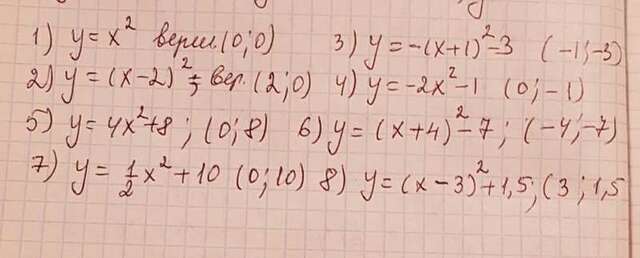 1) y = x² верш. (0; 0) 3) y = -(x+1)² - 3 (-1; -3)
2) y = (x-2)²; вер. (2; 0) 4) y = -2x² - 1 (0; -1)
5) y = 4x² + 8; (0; 8) 6) y = (x+4)² - 7; (-4; -7)
7) y = 1/2 x² + 10 (0; 10) 8) y = (x-3)² + 1,5; (3; 1,5